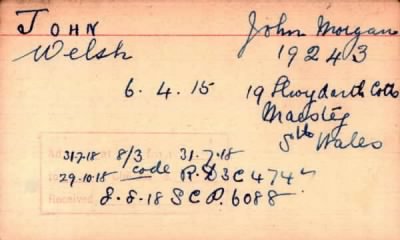 JOHN John Morgan
Welsh 19243
6. 4. 15 19 Llwydarth Cotts
Maesteg
Sth Wales
31-7-18 8/3 31.7.18
29.10.18 code R.D3C474
8-8-18 S C P. 6088
Received